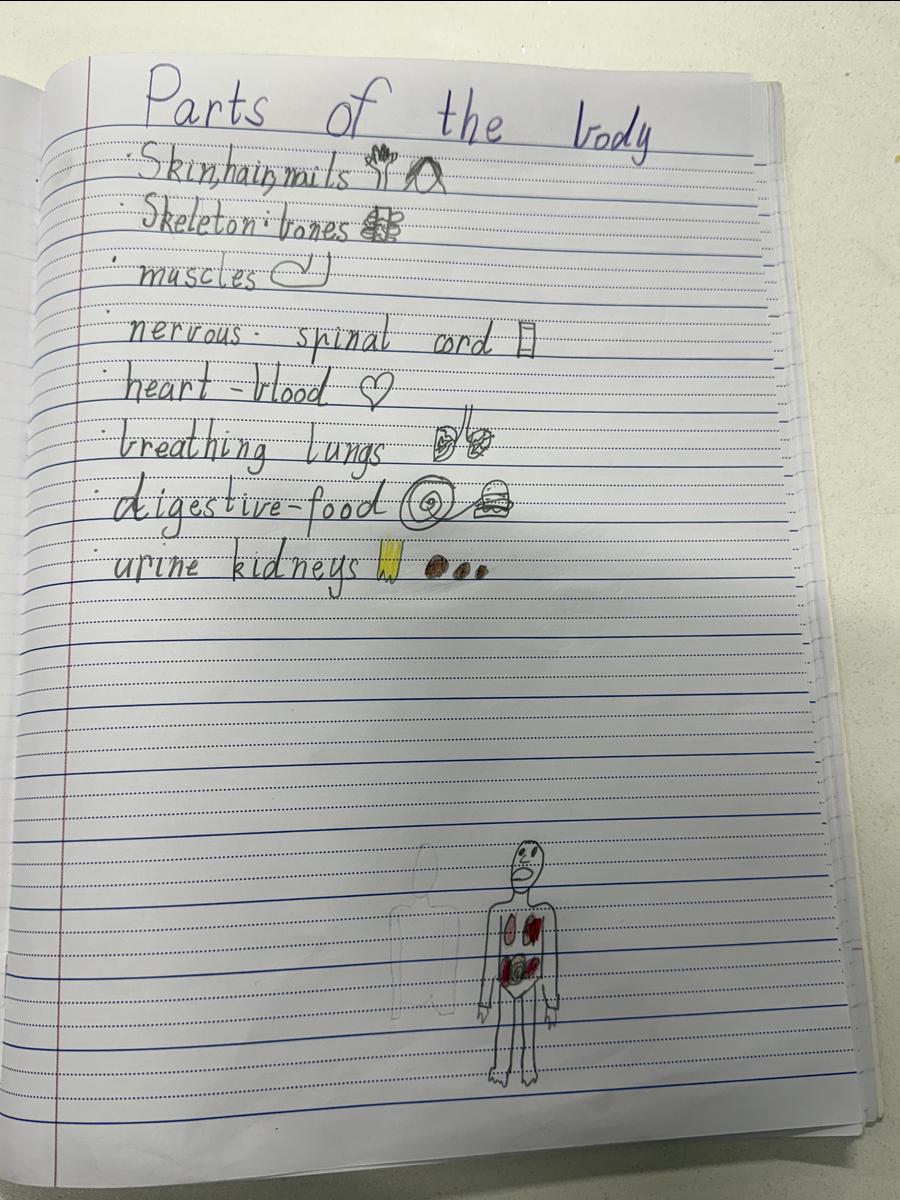 Parts of the body
· Skin, hair, nails
· Skeleton: bones
· muscles
· nervous - spinal cord
· heart - blood
· breathing lungs
· digestive - food
· urine kidneys